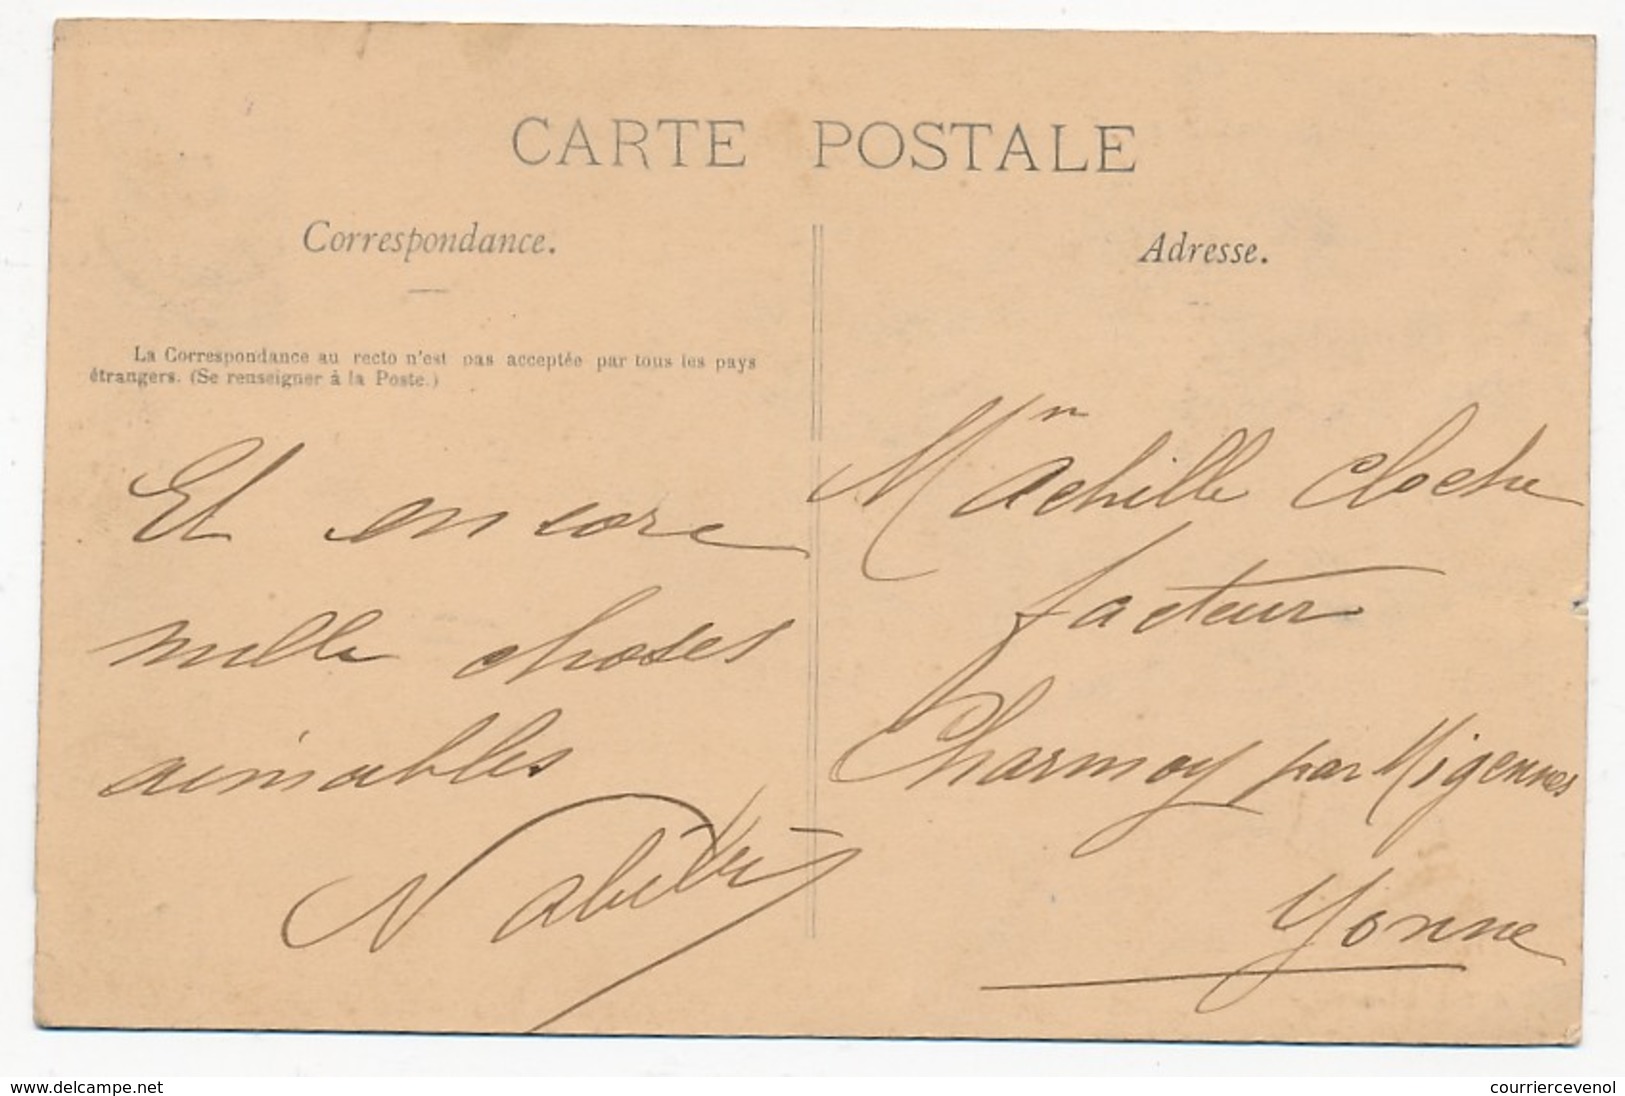 CARTE POSTALE
Correspondance.
La Correspondance au recto n'est pas acceptée par tous les pays
étrangers. (Se renseigner à la Poste.)
Et encore
mille choses
aimables
Adresse.
Mr Achille Cloche
facteur
Charmoy par Migennes
Yonne
www.delcampe.net
courriercevenol